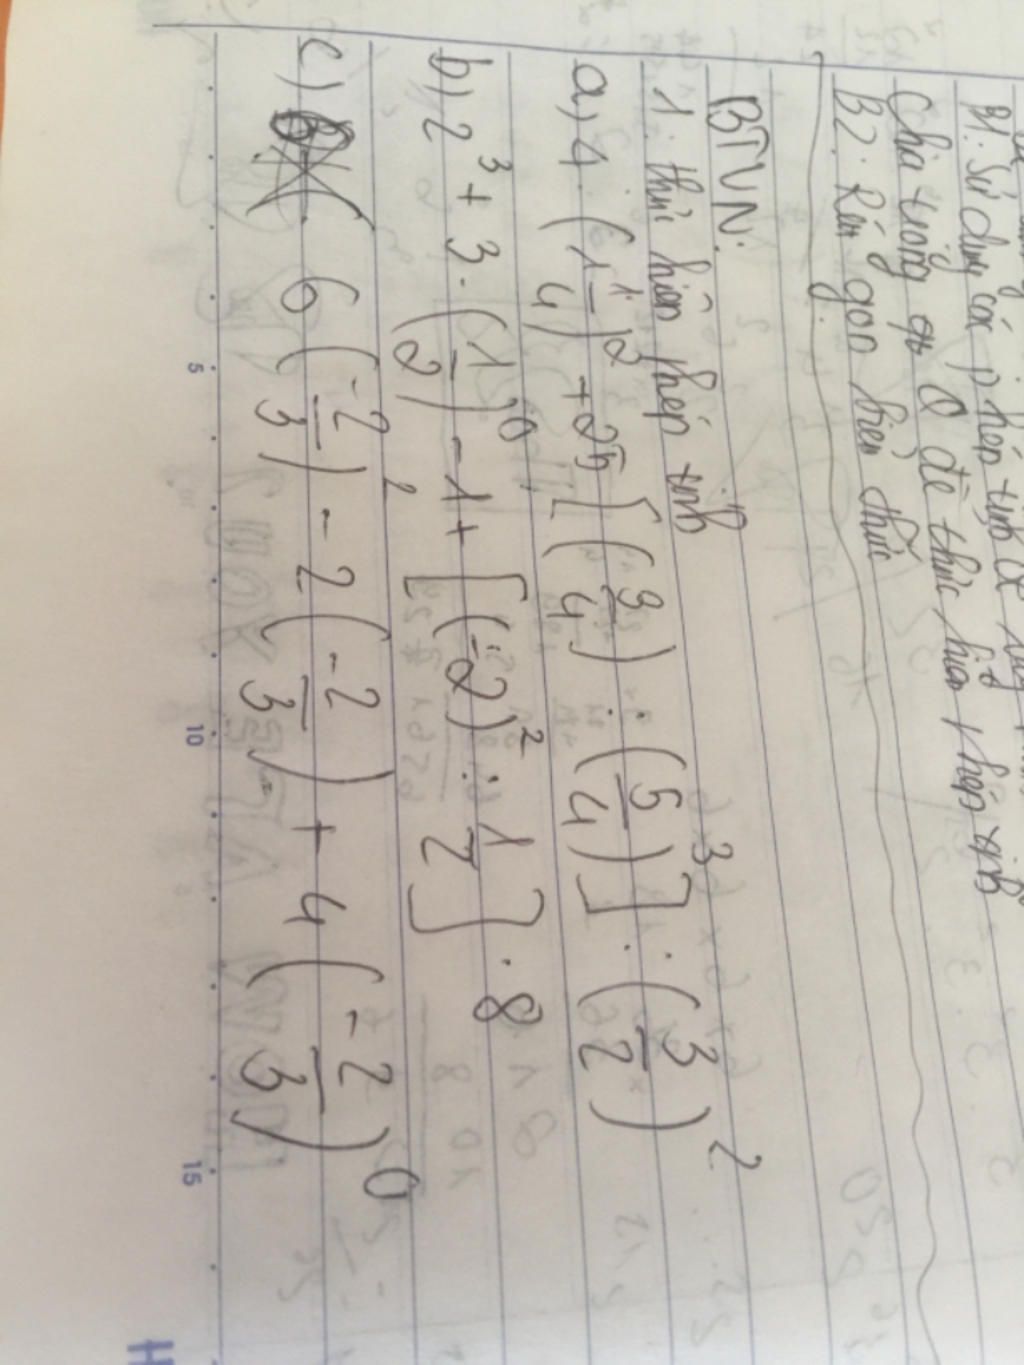 B1: Sử dụng các phép tính để
Chia tường qu Q để thực hiện phép tính
B2: Rén gọn biên thức
BTVN:
1: thực hiện phép tính
a, 4. (1 1/4)² + 25 [(3/4) : (5/4)]³ : (3/2)²
b, 2³ + 3 . (1/2)⁰ - 1 + [(-2)² : 1/2] . 8
c) 6 (-2/3)² - 2 (-2/3) + 4 (-2/3)⁰
5
10
15
H